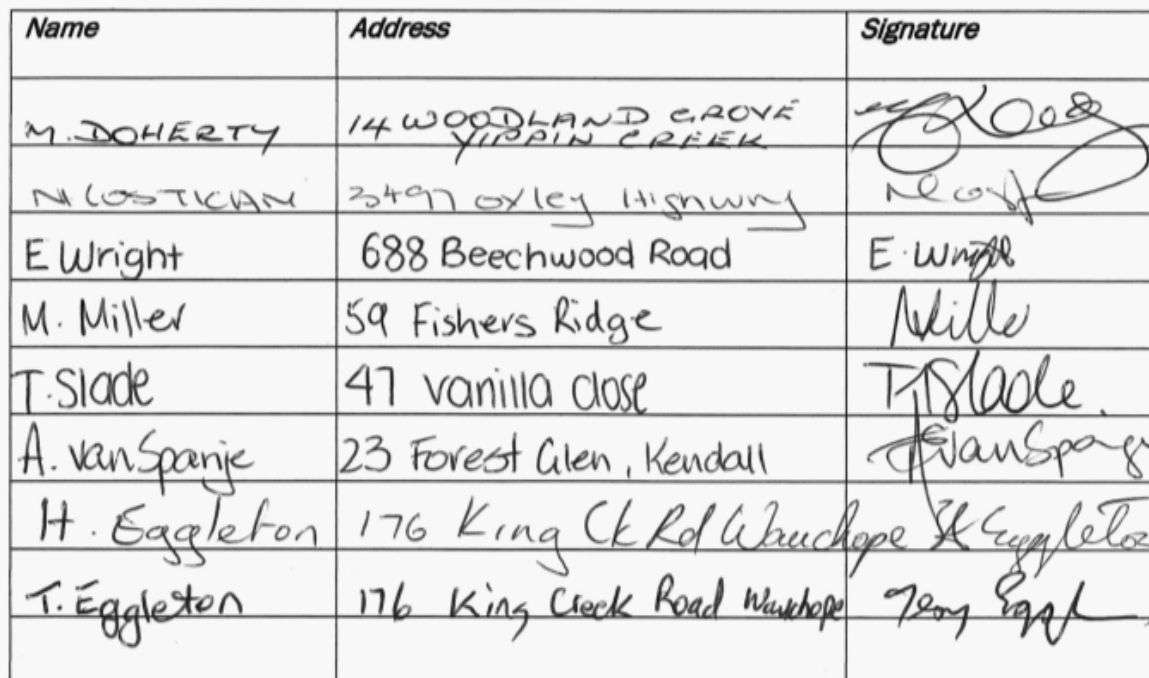 Name Address Signature
M. DOHERTY 14 WOODLAND GROVE
YIPPIN CREEK
N COSTIGAN 3497 Oxley Highway
E Wright 688 Beechwood Road E. Wright
M. Miller 59 Fishers Ridge Mille
T. Slade 47 vanilla close T. Slade.
A. van Spanje 23 Forest Glen, Kendall
H. Eggleton 176 King Ck Rd Wauchope H Eggleton
T. Eggleton 176 King Creek Road Wauchope